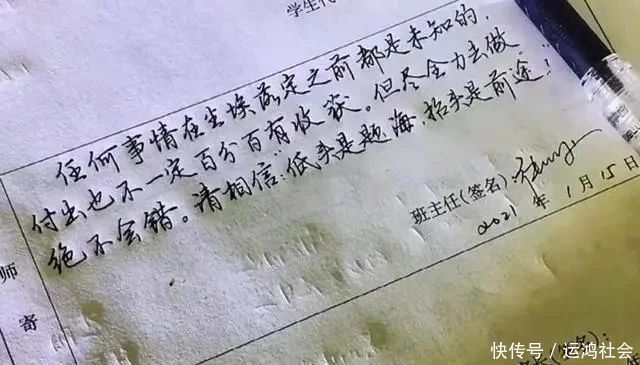 学生代
任何事情在尘埃落定之前都是未知的，
付出也不一定百分百有收获。但尽全力去做
绝不会错。请相信：低头是题海，抬头是前途！
班主任(签名)：
2021 年 1 月 15 日
师
寄
快传号 / 运鸿社会